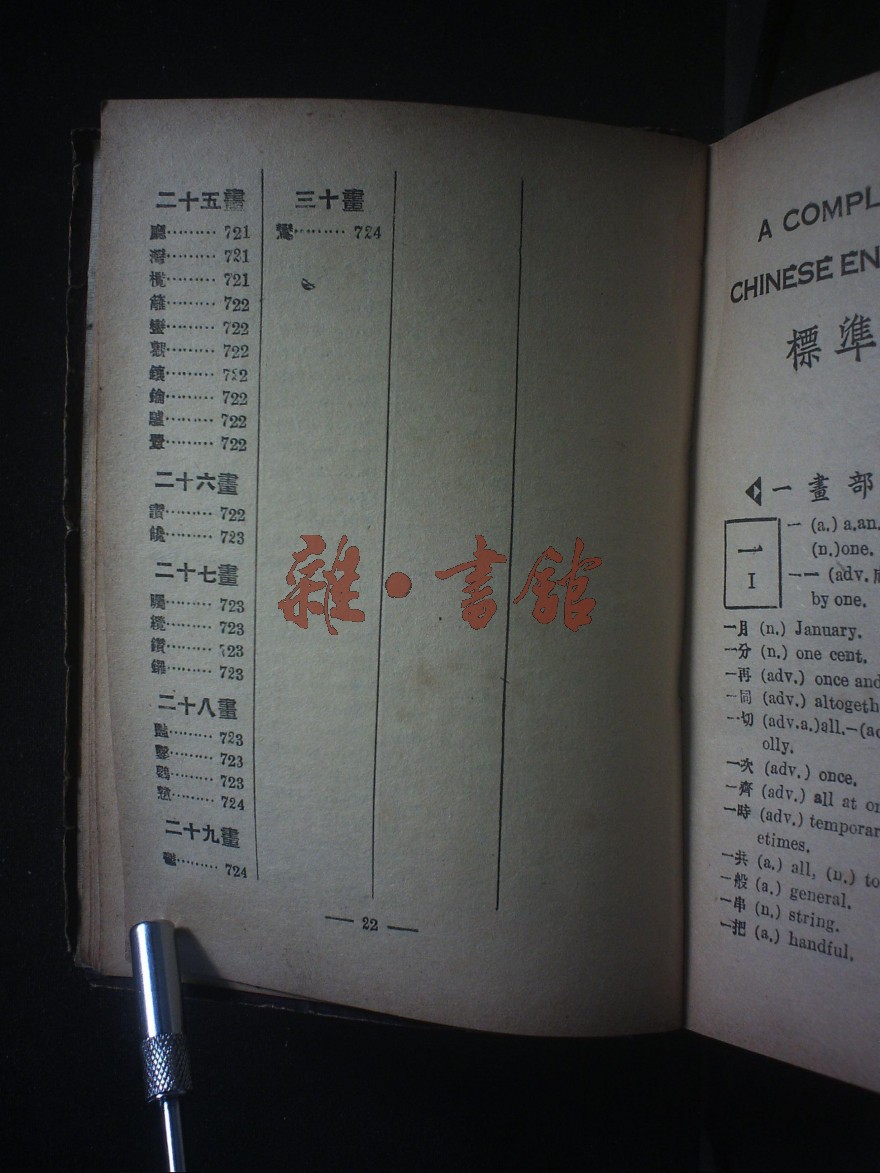 二十五畫
廳……… 721
灣……… 721
欖……… 721
籬……… 722
蠻……… 722
觀……… 722
鑲……… 722
鑰……… 722
驢……… 722
……… 722
二十六畫
讚……… 722
饞……… 723
二十七畫
矚……… 723
纜……… 723
鑽……… 723
鑼……… 723
二十八畫
豔……… 723
鑿……… 723
鸚……… 723
……… 724
二十九畫
……… 724
三十畫
鸞……… 724
— 22 —
雜·書館
A COMPL
CHINESE EN
標準
一畫部
一
1
一 (a.) a.an.
(n.)one.
一一 (adv.
by one.
一月 (n.) January.
一分 (n.) one cent.
一再 (adv.) once and
一同 (adv.) altogeth
一切 (adv.a.)all.—(ad
olly.
一次 (adv.) once.
一齊 (adv.) all at on
一時 (adv.) temporar
etimes.
一共 (a.) all, (n.) to
一般 (a.) general.
一串 (n.) string.
一把 (a.) handful.